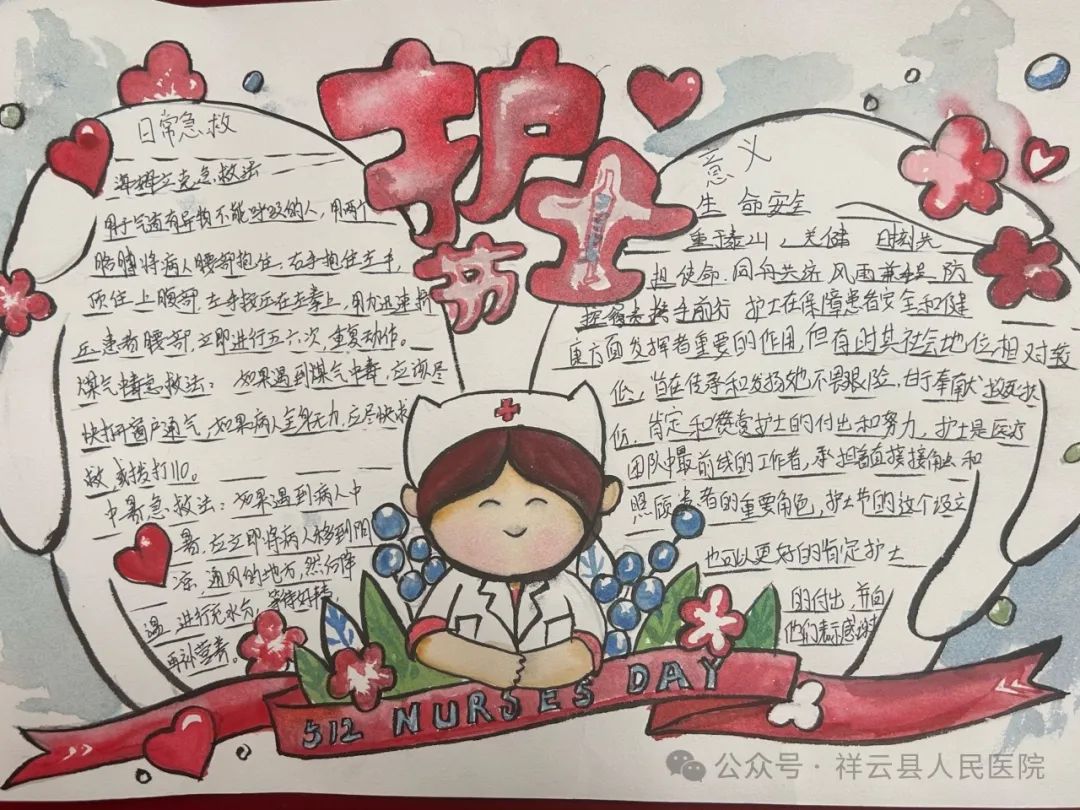 护士
节
日常急救
海姆立克急救法
用于气道有异物不能呼吸的人,用两个
胳膊将病人腰部抱住,右手抱住左手,
顶住上腹部,左手放在左拳上,用力迅速挤
压患者腰部,立即进行五六次,重复动作。
煤气中毒急救法:如果遇到煤气中毒,应该尽
快打开窗户通气,如果病人全身无力,应尽快求
救,或拨打110。
中暑急救法:如果遇到病人中
暑,应立即将病人移到阴
凉,通风的地方,然后降
温,进行充水分,等待好转,
再补营养。
意义
生命安全
重于泰山,关健时刻共
担使命,同舟共济风雨兼程防
携手前行护士在保障患者安全和健
康方面发挥着重要的作用,但有时其社会地位相对较
低,旨在传承和发扬她不畏艰险,甘于奉献
肯定和赞赏护士的付出和努力,护士是医疗
团队中最前线的工作者,承担着直接接触和
照顾患者的重要角色,护士节的这个设立
也可以更好的肯定护士
的付出,并向
他们表示感谢
512 NURSES DAY
公众号·祥云县人民医院